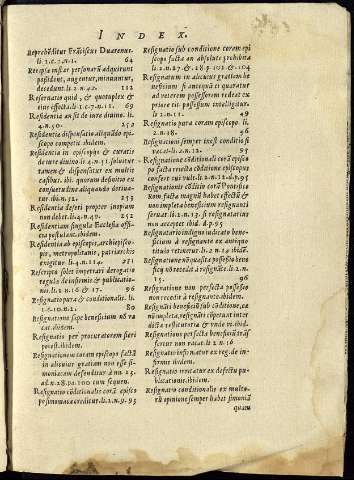 INDEX.
Reprehẽditur Frãciscus Duarenus.
li.2.c.7.n.1. 64
Receptа instar personarũ adquirunt
possident, augentur, minuuntur,
decedunt. li.2.n.42. 112
Reservatio quid, & quotuplex &
eius effecta. li.1.c.7.n.11. 69
Residentia an sit de iure divino. li.
4.n.50. 252
Residentia dispensatio aliquãdo epi-
scopo competit ibidem.
Residentia in episcopis & curatis
de iure divino li.4.n.51. solvitur
tamen & dispensatur ex multis
causibus. ibi. quorum definitio ex
consuetudine aliquando deriva-
tur. ibi.n.52. 253
Residentia deferi propter inopiam
non debet. li.4.n.49. 252
Residentiam singula Ecclesia offi-
cia postulant. ibidem.
Residentia ab episcopis, archiepisco-
pis, metropolitanis, patriarchis
exigitur. li.4.n.114. 251
Rescripta solet impetrari derogatio
regula de infirmis & publicatio-
nis. li.2.n.16 & 17. 96
Resignatio pura & conditionalis. li.
1.c.10.n.2. 80
Resignatione sepe beneficium nõ va
cat. ibidem.
Resignatio per procuratorem fieri
potest. ibidem.
Resignationem coram episcopo factã
in alicuius gratiam non esse si-
moniacam defenditur à nu. 25.
ad.n.28. pa.100 cum sequen.
Resignatio cõditionalis corã episco
po simoniaca creditur. li.2.n.9. 93
Resignatio sub conditione coram epi
scopo facta an absolute prohibita
li.2.n.27 & 28. p. 102 & 104
Resignatum in alicuius gratiam be
neficium si antequã ei quaratur
ad veterem possessorem redeat ex
priore tit. possessum intelligatur.
li.2.n.11. 49
Resignatio pura coram episcopo. li.
2.n.18. 96
Resignationem semper inest conditio si
vacat. li.2.n.12.
Resignatione cõditionali corã episco
po facta reiecta conditione episcopus
conferre cui vult. li.2.n.12.d.p.95
Resignationis cõditio corã Põntifice
Rom. facta magnũ habet effectũ &
non impleta beneficium resignanti
servat. li.2.n.13. si resignatarius
non accepit ibid. d.p.95
Resignatario indigno iudicato bene-
ficium à resignante ex antiquo
titulo retinetur. li.2.n.14. ibidem.
Resignatione nõ quasita possessio bene
ficij nõ recedit à resignãte. li.2.n.
15. 96
Resignatione non perfecta possessio
non recedit à resignante. ibidem.
Resignãti beneficiũ sub cõditione, ea
nõ impleta, resignãti reperunt inter
dicta restitutoria & unde vi. ibid.
Resignatione perfecta beneficiũ trãs
fertur non vacat li.2.n.16
Resignatio infirmatur ex reg. de in-
firmis. ibidem.
Resignatio irritatur ex defectu pu-
blicationis. ibidem.
Resignatio conditionalis ex multo-
rũ opinione semper habet simoniã
quam